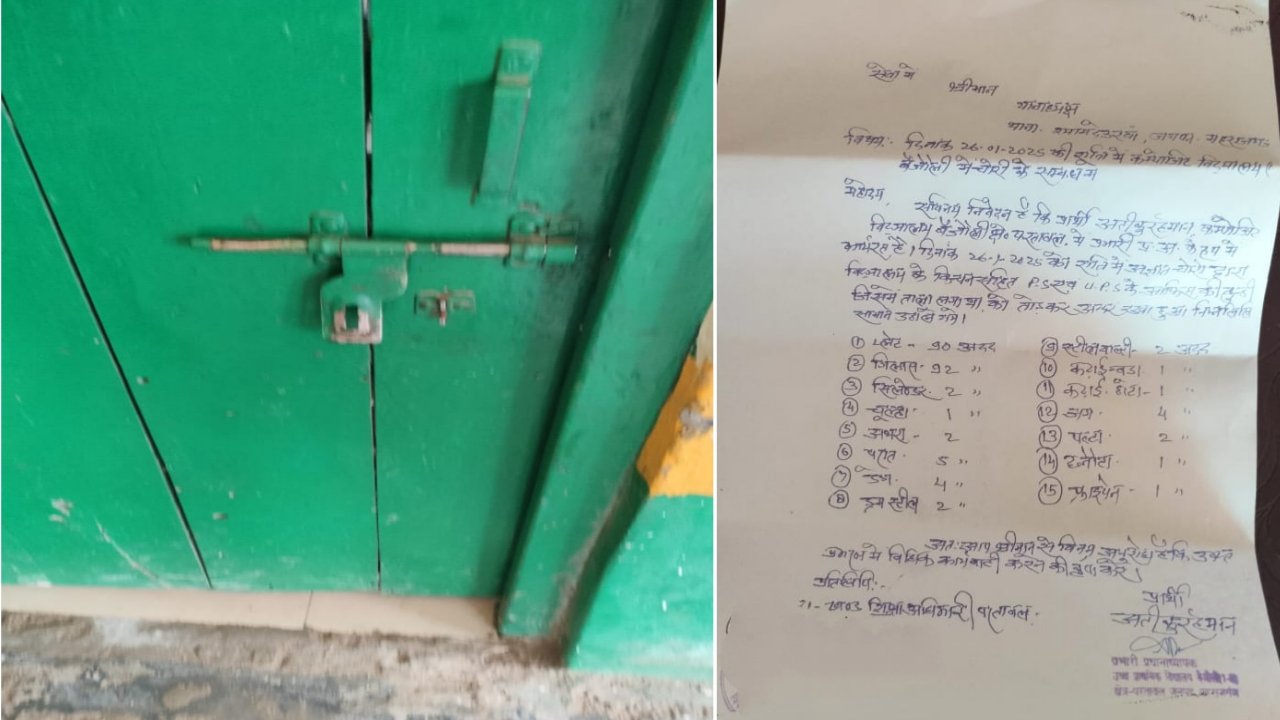 सेवा में
श्रीमान
थानाध्यक्ष
थाना- श्यामदेउरवां, जनपद- महराजगंज
विषय:- दिनांक 26-01-2025 की रात्रि में कम्पोजिट विद्यालय
बैजौली में चोरी के सम्बन्ध में
महोदय,
सविनय निवेदन है कि प्रार्थी अतीकुर्रहमान कम्पोजिट
विद्यालय बैजौली क्षे० परतावल में प्रभारी प्र.अ. के रूप में
कार्यरत है। दिनांक 26-1-2025 की रात्रि में अज्ञात चोरों द्वारा
विद्यालय के किचन सहित P.S एवं U.P.S के आफिस की कुन्डी
जिसमें ताला लगा था, को तोड़कर अन्दर रखा हुआ निम्नलिखित
सामान उठा ले गये।
① प्लेट - 90 अदद
② गिलास- 92 "
③ सिलेण्डर- 2 "
④ चूल्हा- 1 "
⑤ 2
⑥ परात- 5 "
⑦ 4 "
⑧ ड्रम स्टील 2 "
⑨ स्टील बाल्टी- 2 अदद
⑩ कढ़ाई बड़ा- 1 "
⑪ कढ़ाई छोटा- 1 "
⑫ जग- 4 "
⑬ पल्टा- 2 "
⑭ 1 "
⑮ फ्राईपेन- 1 "
अतः श्रीमान से विनम्र अनुरोध है कि उक्त
प्रकरण में विधिक कार्यवाही करने की कृपा करें।
प्रतिलिपि:-
1- खण्ड शिक्षा अधिकारी परतावल-
प्रार्थी
अतीकुर्रहमान
प्रभारी प्रधानाध्यापक
उच्च प्राथमिक विद्यालय बैजौली
क्षेत्र-परतावल जनपद महराजगंज